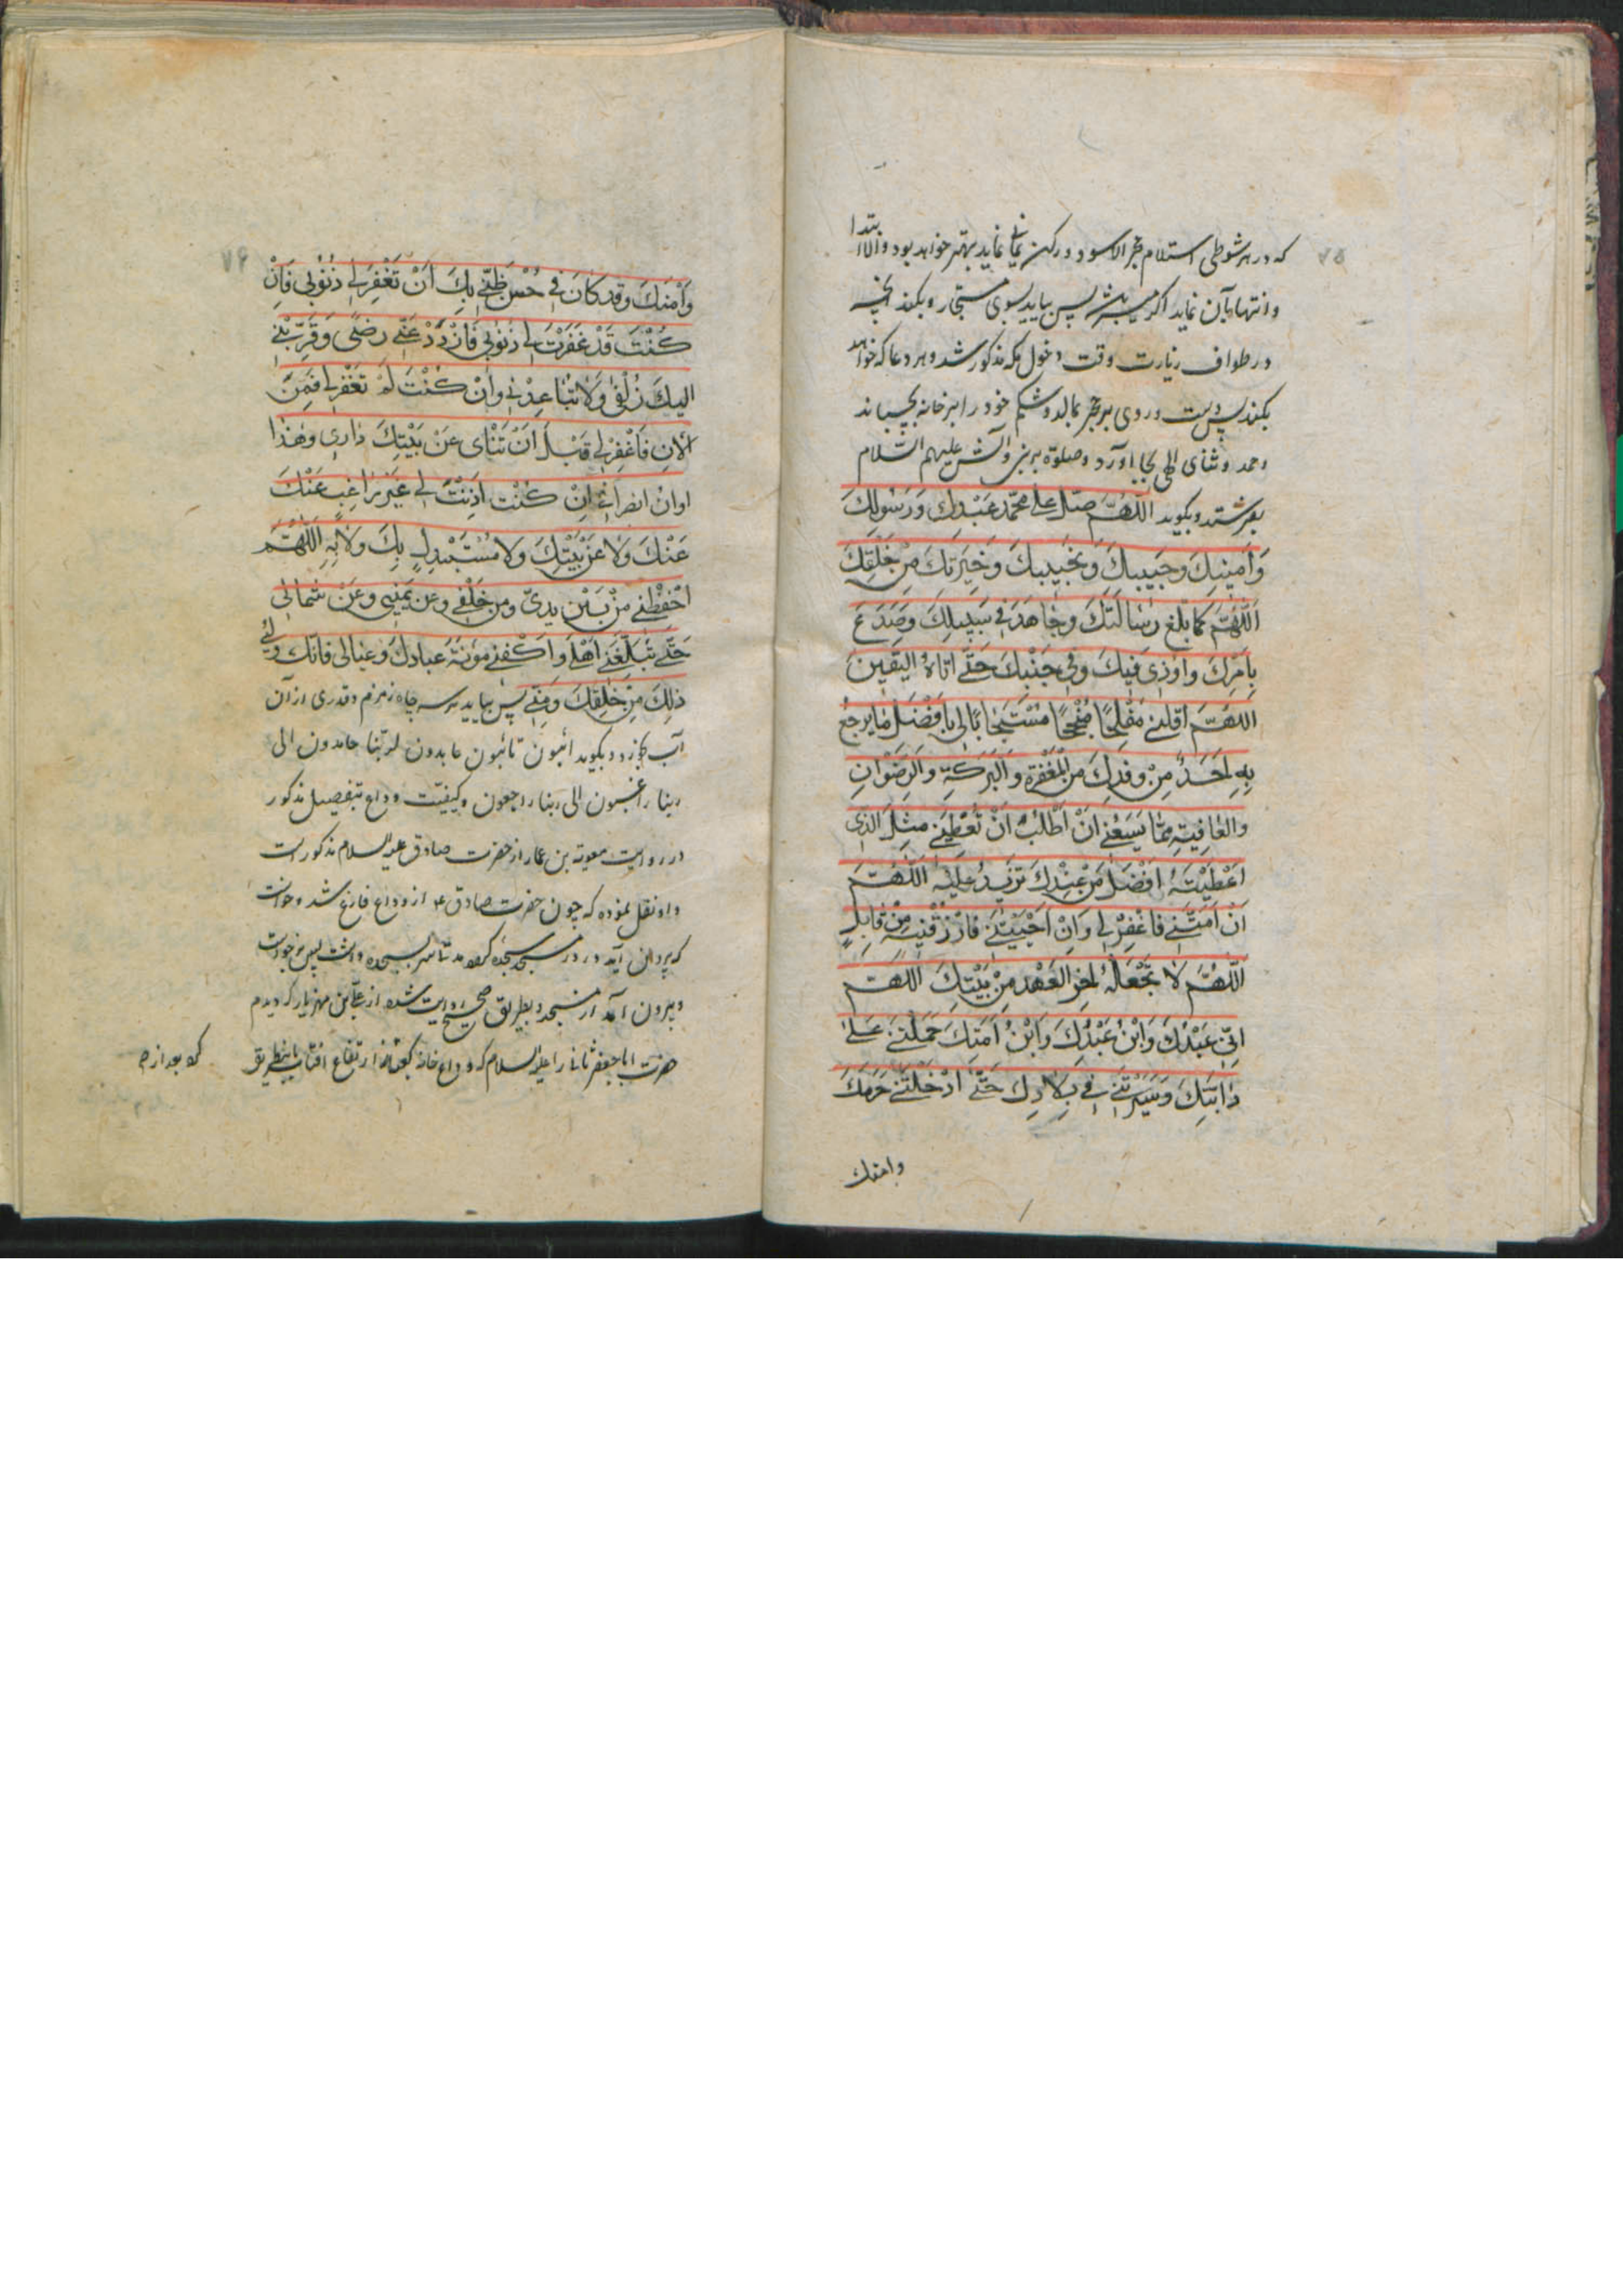 ۷۵
که در هر شوطی استلام حجر الاسود و رکن یمانی نماید بهتر خواهد بود والا ابتدا
وانتها بآن نماید اگر میسر باشد پس بیاید بسوی مستجار و بکند آنچه
در طواف زیارت وقت دخول مکه مذکور شد و هر دعا که خواهد
بکند پس دست و روی بر حجر بمالد و شکم خود را بر خانه بچسباند
و حمد و ثنای الهی بجا آورد و صلوة بر نبی و آلش علیهم السلام
بفرستد و بکوید اللَّهُمَّ صَلِّ عَلی مُحَمَّدٍ عَبْدِكَ وَرَسُولِكَ
وَاَمینِكَ وَحَبیبِكَ وَنَجیبِكَ وَخِیَرَتِكَ مِنْ خَلْقِكَ
اَللّهُمَّ كَما بَلَّغَ رِسالَتَكَ وَجاهَدَ فی سَبیلِكَ وَصَدَعَ
بِاَمْرِكَ وَاوُذِیَ فیكَ وَفی جَنْبِكَ حَتّی اَتاهُ الیَقینَ
اللّهُمَّ اَقْلِبْنی مُفْلِحًا مُنْجِحًا مُسْتَجابًا لی بِاَفْضَلِ ما یَرْجِعُ
بِهِ اَحَدٌ مِنْ وَفْدِكَ مِنَ الْمَغْفِرَةِ وَالْبَرَكَةِ وَالرِّضْوانِ
وَالعافِیَةِ مِمّا یَسَعُنی اَنْ اَطْلُبَ اَنْ تُعْطِیَنی مِثْلَ الَّذی
اَعْطَیْتَهُ اَفْضَلَ مَنْ عَبَدَكَ تَزیدُ عَلَیْهِ اَللّهُمَّ
اَنْ اَمَتَّنی فَاغْفِرْ لی وَاِنْ اَحْیَیْتَنی فَارْزُقْنیهِ مِنْ قابِلٍ
اَللّهُمَّ لا تَجْعَلْهُ اخِرَ العَهْدِ مِنْ بَیْتِكَ اللّهُمَّ
اِنّی عَبْدُكَ وَابْنُ عَبْدِكَ وَابْنُ اَمَتِكَ حَمَلْتَنی عَلی
دابَّتِكَ وَسَیَّرْتَنی فی بِلادِكَ حَتّی اَدْخَلْتَنی حَرَمَكَ
وامنك
۷۶
وَاَمْنَكَ وَقَد كانَ فی حُسْنِ ظَنّی بِكَ اَنْ تَغْفِرَ لی ذُنُوبی فَاِنْ
كُنْتَ قَدْ غَفَرْتَ لی ذُنُوبی فَازْدَدْ عَنّی رِضًی وَقَرِّبْنی
اِلیكَ زُلْفی وَلا تُباعِدْنی وَاِنْ كُنْتَ لَمْ تَغْفِرْ لی فَمِنَ
الانِ فَاغْفِرْ لی قَبْلَ اَنْ تَنْای عَنْ بَیْتِكَ داری وَهذا
اوانُ انصِرافی اِنْ كُنْتَ اَذِنْتَ لی غَیْرَ راغِبٍ عَنْكَ
عَنْكَ وَلا عَنْ بَیْتِكَ وَلا مُسْتَبْدِلٍ بِكَ وَلا بِهِ اَللّهُمَّ
احْفَظْنی مِنْ بَیْنِ یَدَیَّ وَمِنْ خَلْفی وَعَنْ یَمینی وَعَنْ شِمالی
حَتّی تُبَلِّغَنی اَهْلی وَاَكْفِنی مَؤنَةَ عِبادِكَ وَعِیالی فَاِنَّكَ وَلِیُّ
ذلِكَ مِنْ خَلْقِكَ وَمِنّی پس بیاید بر سر چاه زمزم و قدری از آن
آب بخورد و بکوید ائبون تائبون عابدون لربنا حامدون الی
ربنا راغبون الی ربنا راجعون و کیفیت وداع بتفصیل مذکور
در روایت معویة بن عمار از حضرت صادق علیه السلام مذکور است
و او نقل نموده که چون حضرت صادق ع از وداع فارغ شد و خواست
که بیرون آید در در مسجد سجده کرد و مدتی سر بسجده داشت پس برخواست
و بیرون آمد از مسجد و بطریق صحیح روایت شده از علی بن مهزیار که دیدم
حضرت ابا جعفر ثانی را علیه السلام که وداع خانه کعبه بعد از ارتفاع افتاب باینطریق
که بعد از